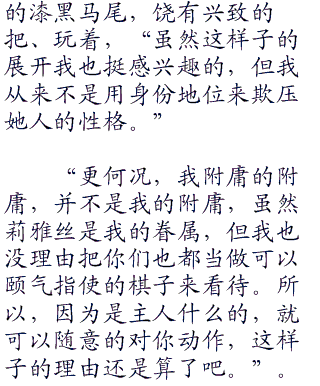 的漆黑马尾，饶有兴致的
把、玩着，“虽然这样子的
展开我也挺感兴趣的，但我
从来不是用身份地位来欺压
她人的性格。”
“更何况，我附庸的附
庸，并不是我的附庸，虽然
莉雅丝是我的眷属，但我也
没理由把你们也都当做可以
颐气指使的棋子来看待。所
以，因为是主人什么的，就
可以随意的对你动作，这样
子的理由还是算了吧。”。